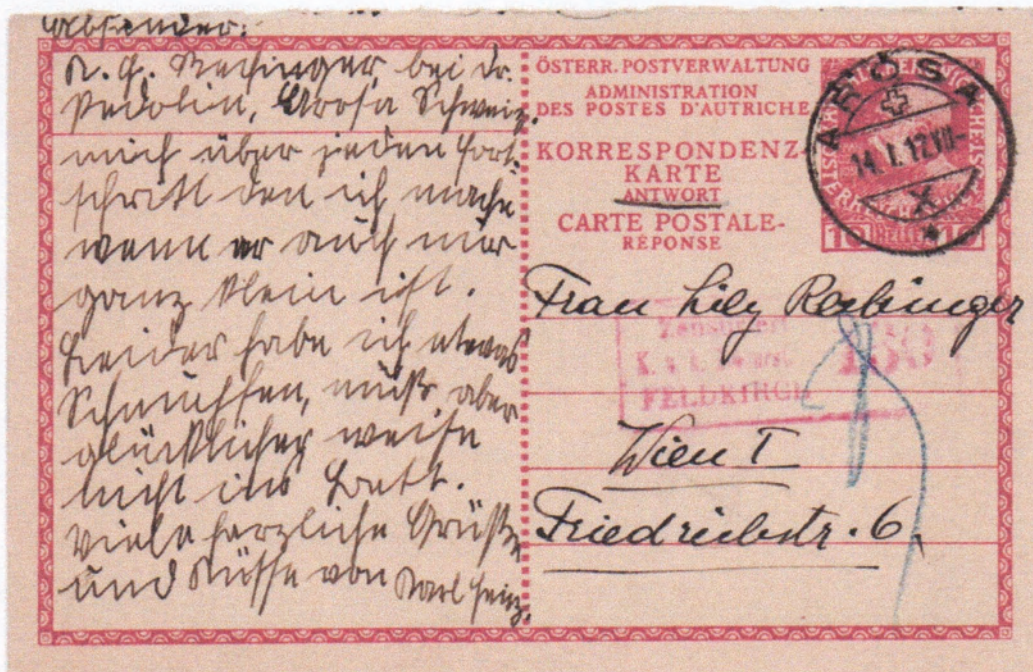 Absender:
K. H. Rechinger, bei Dr.
Pedolin, Arosa Schweiz.
mich über jeden Fort-
schritt den ich mache
wenn er auch nur
ganz klein ist.
Leider habe ich etwas
Schnupfen, muß aber
glücklicher weise
nicht ins Bett.
Viele herzliche Grüße
und Küsse von Karl Heinz.
ÖSTERR. POSTVERWALTUNG
ADMINISTRATION
DES POSTES D'AUTRICHE
KORRESPONDENZ-
KARTE
ANTWORT
CARTE POSTALE-
RÉPONSE
AROSA
14. I. 17. VII-
X
10 HELLER 10
Frau Lily Rechinger
Zensuriert
K. u. k.
FELDKIRCH
Wien I
Friedrichstr. 6.